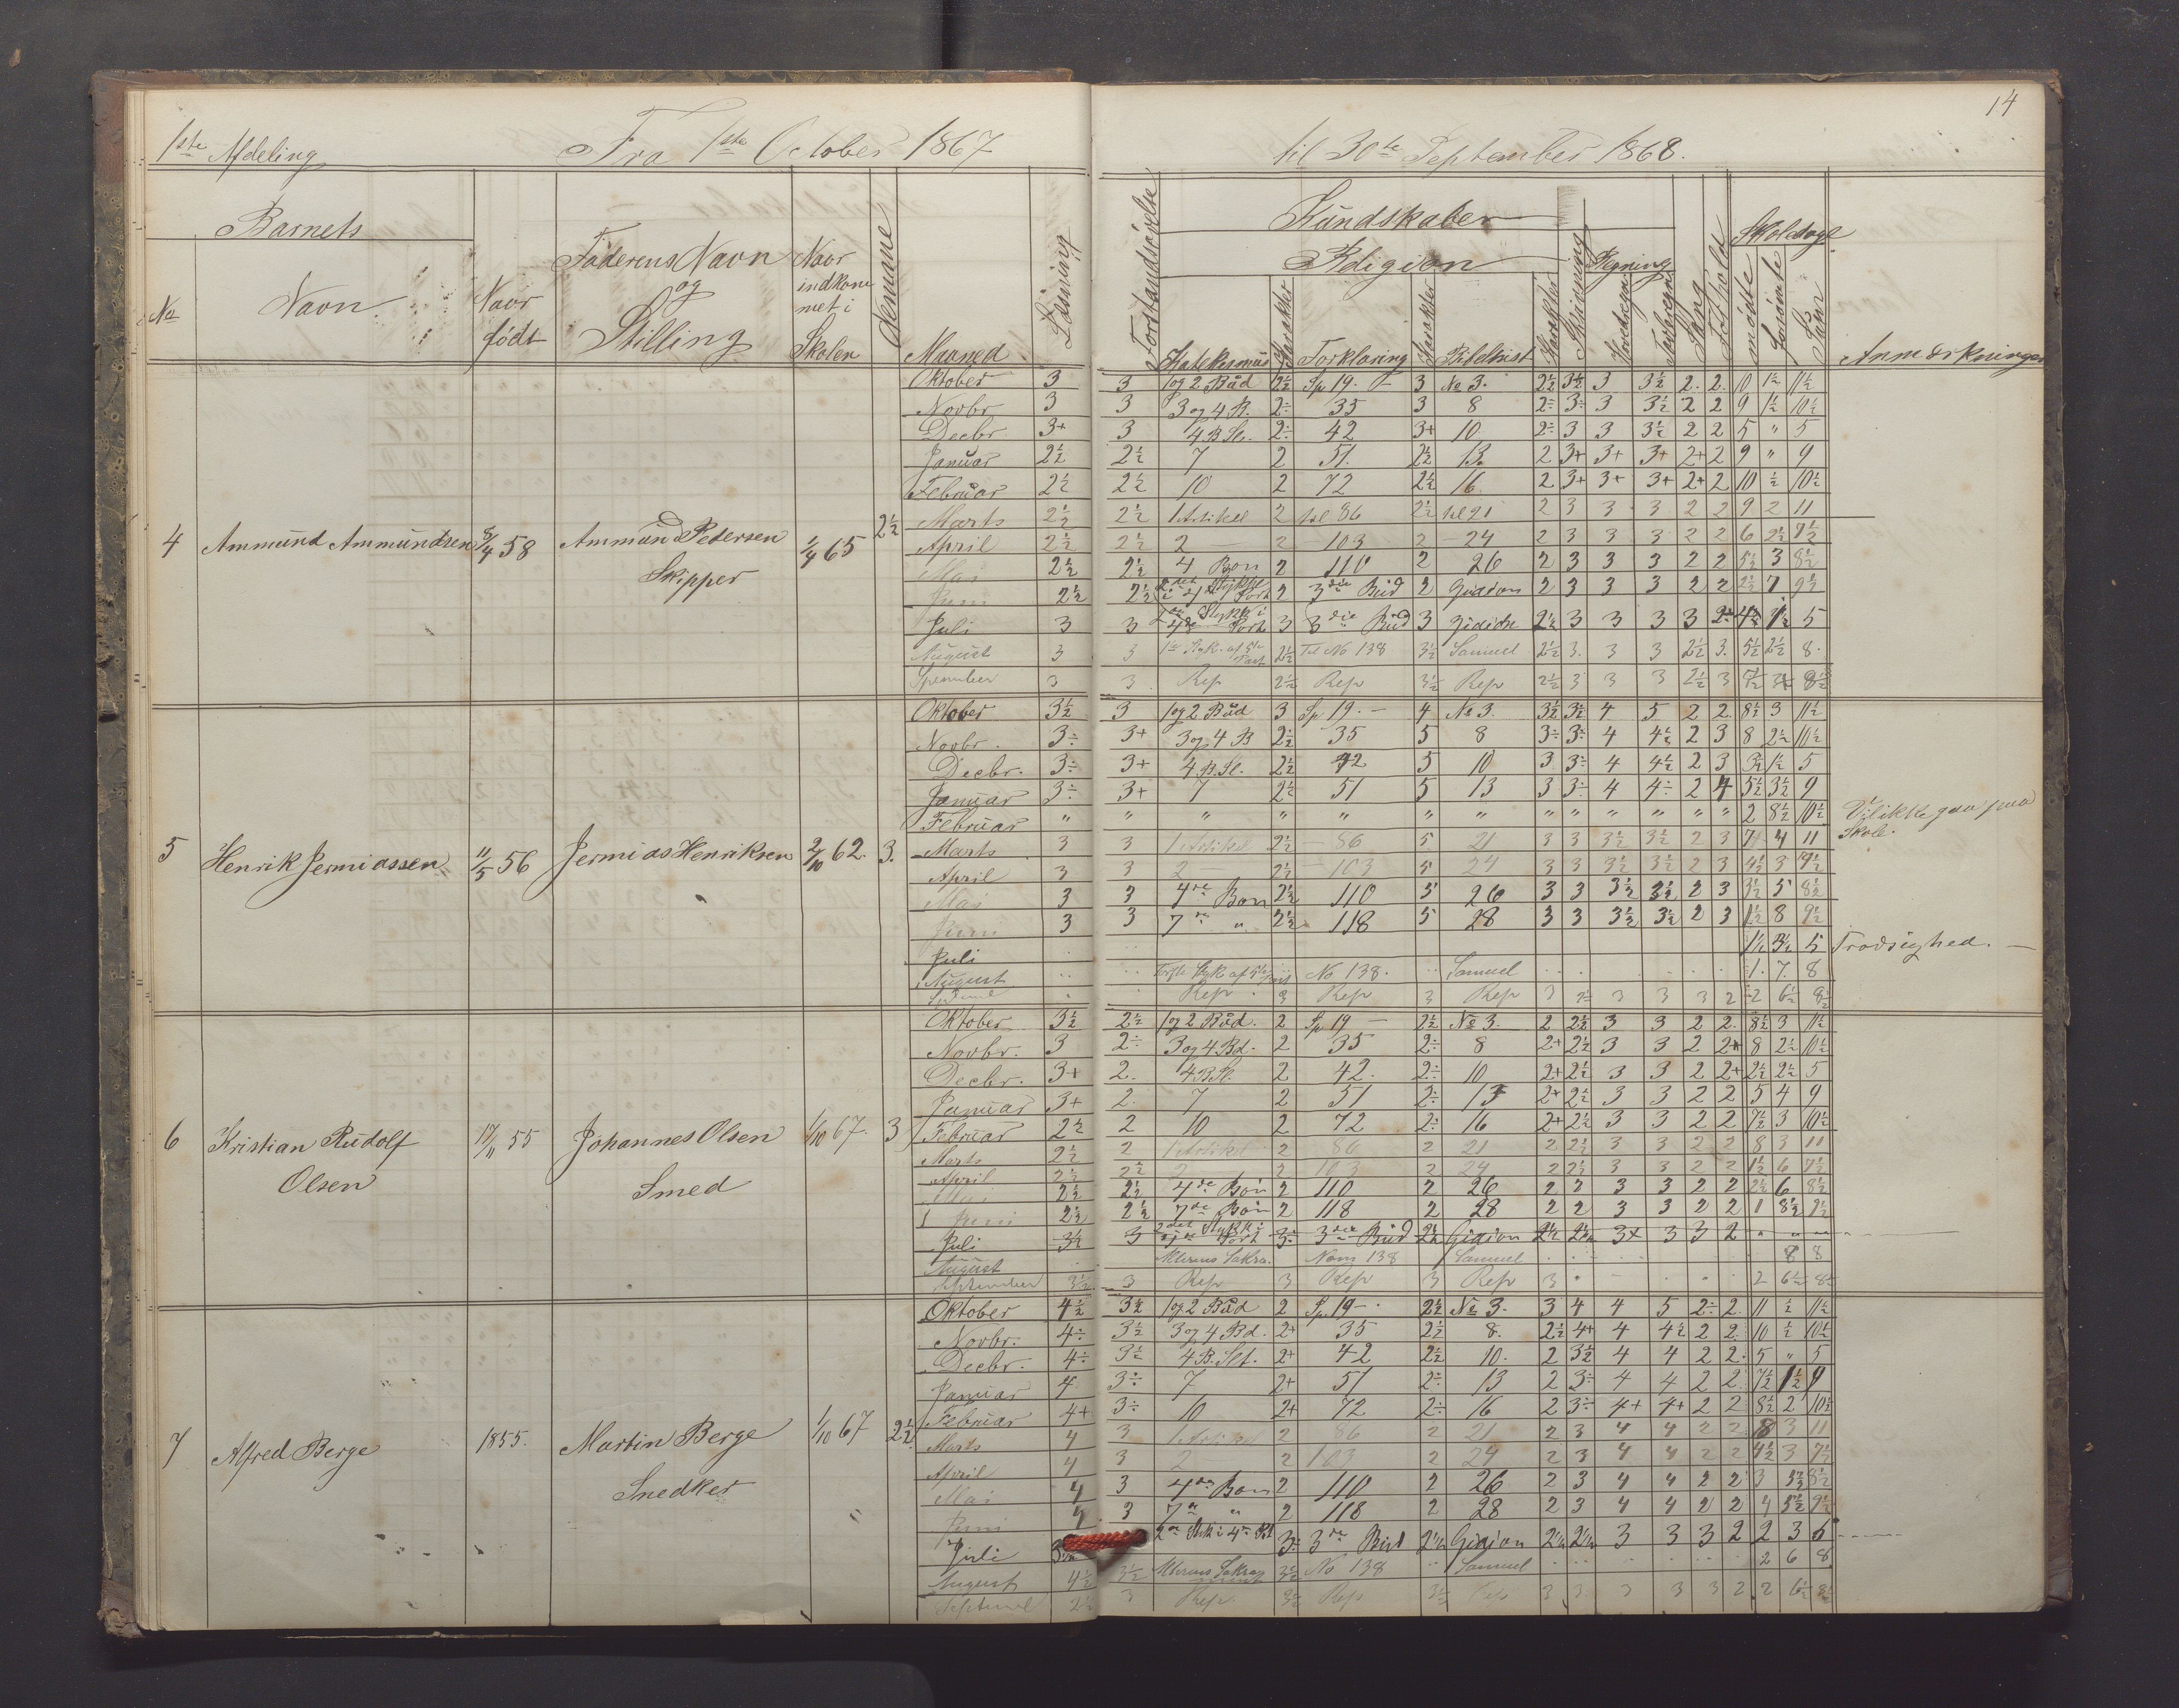 14
1ste Afdeling Fra 1ste October 1867 til 30te September 1868.
Barnets
No Navn Naar født
Faderens Navn og Stilling
Naar indkommet i Skolen
Maaned
Læsning
Kundskaber
Religion
Katekismus Karakter Forklaring Karakter Bibelhist Karakter
Skrivning
Regning
Sang
Skoledage
mødte forsømte
Anmærkninger
4 Ammund Ammundsen 8/4 58 Ammund Pedersen Skipper 1/4 65 2½
Oktober 3 3 1 og 2 Bud 2½ Sp 19. – 3 No 3. 2½ 3½ 3 3½ 2. 2. 10 1½ 11½
Novbr 3 3 3 og 4 B. 2÷ 35 3 8 2÷ 3÷ 3 3½ 2 2 9 1½ 10½
Decbr 3+ 3 4 B Sl. 2÷ 42 3+ 10 2÷ 3 3 3½ 2 2 5 " 5
Januar 2½ 2½ 7 2 51. 2½ 13. 2 3+ 3+ 3+ 2+ 2 9 " 9
Februar 2½ 2½ 10 2 72 2½ 16. 2 3+ 3+ 3+ 2+ 2 10 ½ 10½
Marts 2½ 2½ 1 Artikel 2 til 86 2½ til 21 2 3 3 3 2 2 9 2 11
April 2½ 2½ 2 – 2 – 103 2 – 24 2 3 3 3 2 2 6
Mai 2½ 2½ 4 Bøn 2 110 2 26 2 3 3 3 2 2 5½ 3 8½
Juni 2½ 2½ 2 3die Bud 2 Gideon 2 3 3 3 2 2 2½ 7 9½
Juli 3 3 3 3die Bud 3 Gideon 2½ 3 3 3 3 5
August 3 3 2½ Til No 138 3½ Samuel 2½ 3. 3 3 2½ 3. 5½ 2½ 8.
3 3 Rep 2½ Rep 3½ Rep 2½ 3 3 3 2½ 3 8½
5 Henrik Jermiassen 11/5 56 Jermias Henriksen 2/10 62. 3.
Oktober 3½ 3 1 og 2 Bud 3 Sp 19. – 4 No 3. 3½ 3½ 4 5 2 2. 8½ 3 11½
Novbr. 3÷ 3+ 3 og 4 B 2½ 35 5 8 3÷ 3÷ 4 4½ 2 3 8 2½ 10½
Decbr. 3÷ 3+ 4 B. Sl. 2½ 42 5 10 3 3÷ 4 4½ 2 3 3½ 1½ 5
Januar 3÷ 3+ 7 2½ 51 5 13 3 3÷ 4 4÷ 2 4 5½ 3½ 9
Februar " " " " " " " " " " " " " 2 8½ 10½ Vilikke gaa paa Skole.
Marts 3 3 1 Artikel 2½ – 86 5 21 3 3 3½ 3½ 2 3 7 4 11
April 3 3 2 – 2½ – 103 5 24 3 3 3½ 3½ 2 3 4½ 3
Mai 3 3 4de Bøn 2½ 110 5 26 3 3 3½ 3½ 2 3 3½ 5 8½
Juni 3 3 7de " 2½ 118 5 28 3 3 3½ 3½ 2 3 1½ 8 9½
Juli 5 Trodsighed. –
August No 138. Samuel 1. 7. 8
Rep Rep 3 Rep 3 3 3 3 2 2 6½ 8½
6 Kristian Rudolf Olsen 55 Johannes Olsen Smed 1/10 67. 3
Oktober 3½ 2½ 1 og 2 Bud. 2 Sp 19 – 2½ No 3. 2 2½ 3 3 2 2. 8½ 3 11½
Novbr. 3 2÷ 3 og 4 Bd. 2 35 2÷ 8 2+ 2½ 3 3 2 2+ 8 2½ 10½
Decbr. 3+ 2. 4 B Sl. 2 42. 2÷ 10 2+ 2½ 3 3 2 2+ 2½ 2½ 5
Januar 3+ 2. 7 2 51 2÷ 13 2+ 2½ 3 3 2 2 5 4 9
Februar 2½ 2 10 2 72 2÷ 16 2+ 2½ 3 3 2 2 7½ 3 10½
Marts 2½ 2 1 Artikel 2 86 2 21 2 2½ 3 3 2 2 8 3 11
April 2½ 2½ 2 – 2 103 2 24 2 2½ 3 3 2 2 1½ 6 7½
Mai 2½ 2½ 4de Bøn 2 110 2 26 2 2 3 3 2 2 2½ 6 8½
Juni 2½ 2½ 7de Bøn 2 118 2 28 2 2 3 3 2 2 1 8½ 9½
Juli 3½ 3 3÷ 3die Bud 2½ Gideon 2½ 2½ 3+ 3 3 2 " " "
August Num 138 Samuel 8 8
September 3½ 3 Rep 3 Rep 3 Rep 3 2 6½ 8½
7 Alfred Berge 1855. Martin Berge Snedker 1/10 67 2½
Oktober 4½ 3½ 1 og 2 Bud 2 Sp. 19 – 2½ No 3. 3 4 4 5 2÷ 2. 11 ½ 11½
Novbr. 4÷ 3½ 3 og 4 Bd. 2+ 35 2½ 8. 2½ 4+ 4 4½ 2 2. 10 ½ 10½
Decbr. 4÷ 3½ 4 B. Slt. 2+ 42 2½ 10. 2 3½ 4 4 2 2. 5 " 5
Januar 4 3÷ 7 2+ 51 2÷ 13 2 3÷ 4 4 2 2. 7½ 1½ 9
Februar 4+ 3÷ 10 2+ 72 2÷ 16 2 3÷ 4+ 4+ 2 2 8½ 2 10½
Marts 4 3 1 Artikel 2 86 2 21 2 3 4 4 2 2 8 3 11
April 4 3 2 – 2 103 2 24 2 3 4 4 2 2 4½ 3 7½
Mai 4 3 4de Bøn 2 110 2 26 2 3 4 4 2 2 3 5½ 8½
Juni 3 7de " 2 118 2 28 2 3 4 4 2 2 4 5½ 9½
Juli 3÷ 3die Bud 2½ Gideon 2½ 2½ 3 3 3 2 2 3
August 4½ 3½ 3½ No 138 Samuel 2 6 8
3 Rep. 3½ Rep 3½ 3 3 3 3 3 2 2 6½ 8½